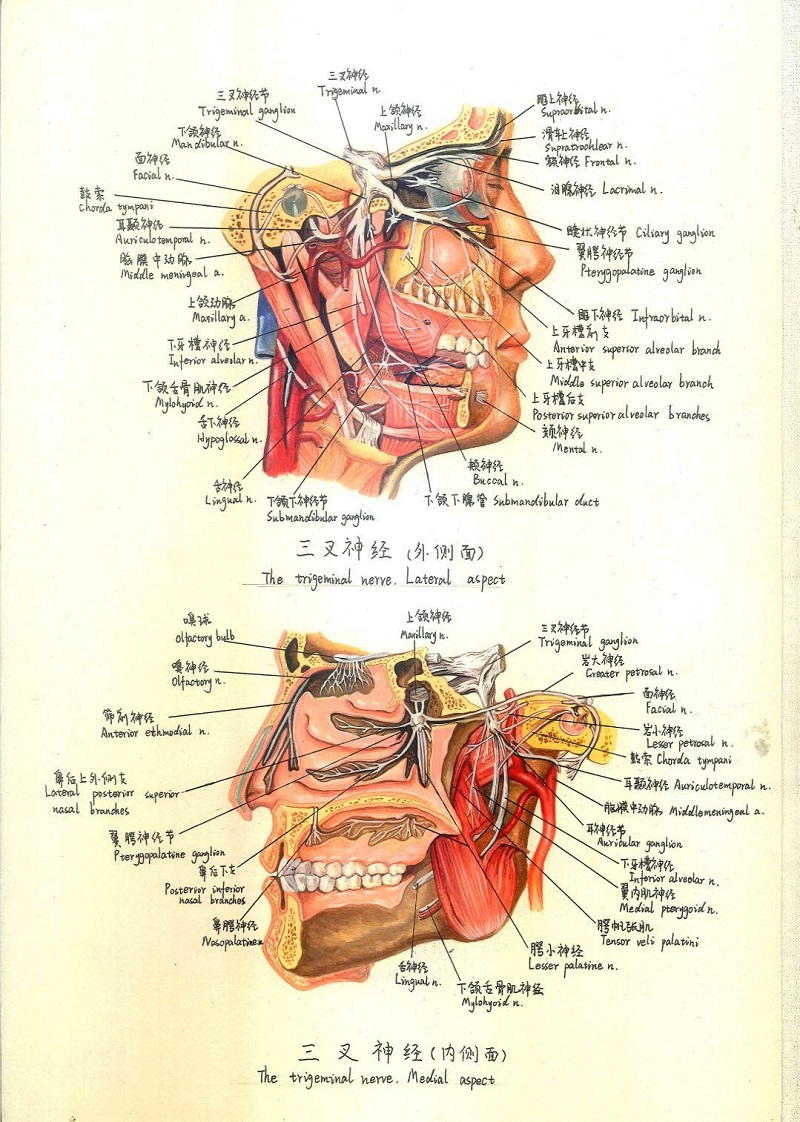 三叉神经
Trigeminal n.
三叉神经节
Trigeminal ganglion
上颌神经
Maxillary n.
下颌神经
Mandibular n.
面神经
Facial n.
鼓索
Chorda tympani
耳颞神经
Auriculotemporal n.
脑膜中动脉
Middle meningeal a.
上颌动脉
Maxillary a.
下牙槽神经
Inferior alveolar n.
下颌舌骨肌神经
Mylohyoid n.
舌下神经
Hypoglossal n.
舌神经
Lingual n.
下颌下神经节
Submandibular ganglion
眶上神经
Supraorbital n.
滑车上神经
Supratrochlear n.
额神经 Frontal n.
泪腺神经 Lacrimal n.
睫状神经节 Ciliary ganglion
翼腭神经节
Pterygopalatine ganglion
眶下神经 Infraorbital n.
上牙槽前支
Anterior superior alveolar branch
上牙槽中支
Middle superior alveolar branch
上牙槽后支
Posterior superior alveolar branches
颏神经
Mental n.
颊神经
Buccal n.
下颌下腺管 Submandibular duct
三叉神经(外侧面)
The trigeminal nerve. Lateral aspect
嗅球
Olfactory bulb
嗅神经
Olfactory n.
筛前神经
Anterior ethmodial n.
鼻后上外侧支
Lateral posterior superior
nasal branches
翼腭神经节
Pterygopalatine ganglion
鼻后下支
Posterior inferior
nasal branches
鼻腭神经
Nasopalatine n.
上颌神经
Maxillary n.
三叉神经节
Trigeminal ganglion
岩大神经
Greater petrosal n.
面神经
Facial n.
岩小神经
Lesser petrosal n.
鼓索 Chorda tympani
耳颞神经 Auriculotemporal n.
脑膜中动脉 Middle meningeal a.
耳神经节
Auricular ganglion
下牙槽神经
Inferior alveolar n.
翼内肌神经
Medial pterygoid n.
腭帆张肌
Tensor veli palatini
腭小神经
Lesser palatine n.
舌神经
Lingual n.
下颌舌骨肌神经
Mylohyoid n.
三叉神经(内侧面)
The trigeminal nerve. Medial aspect